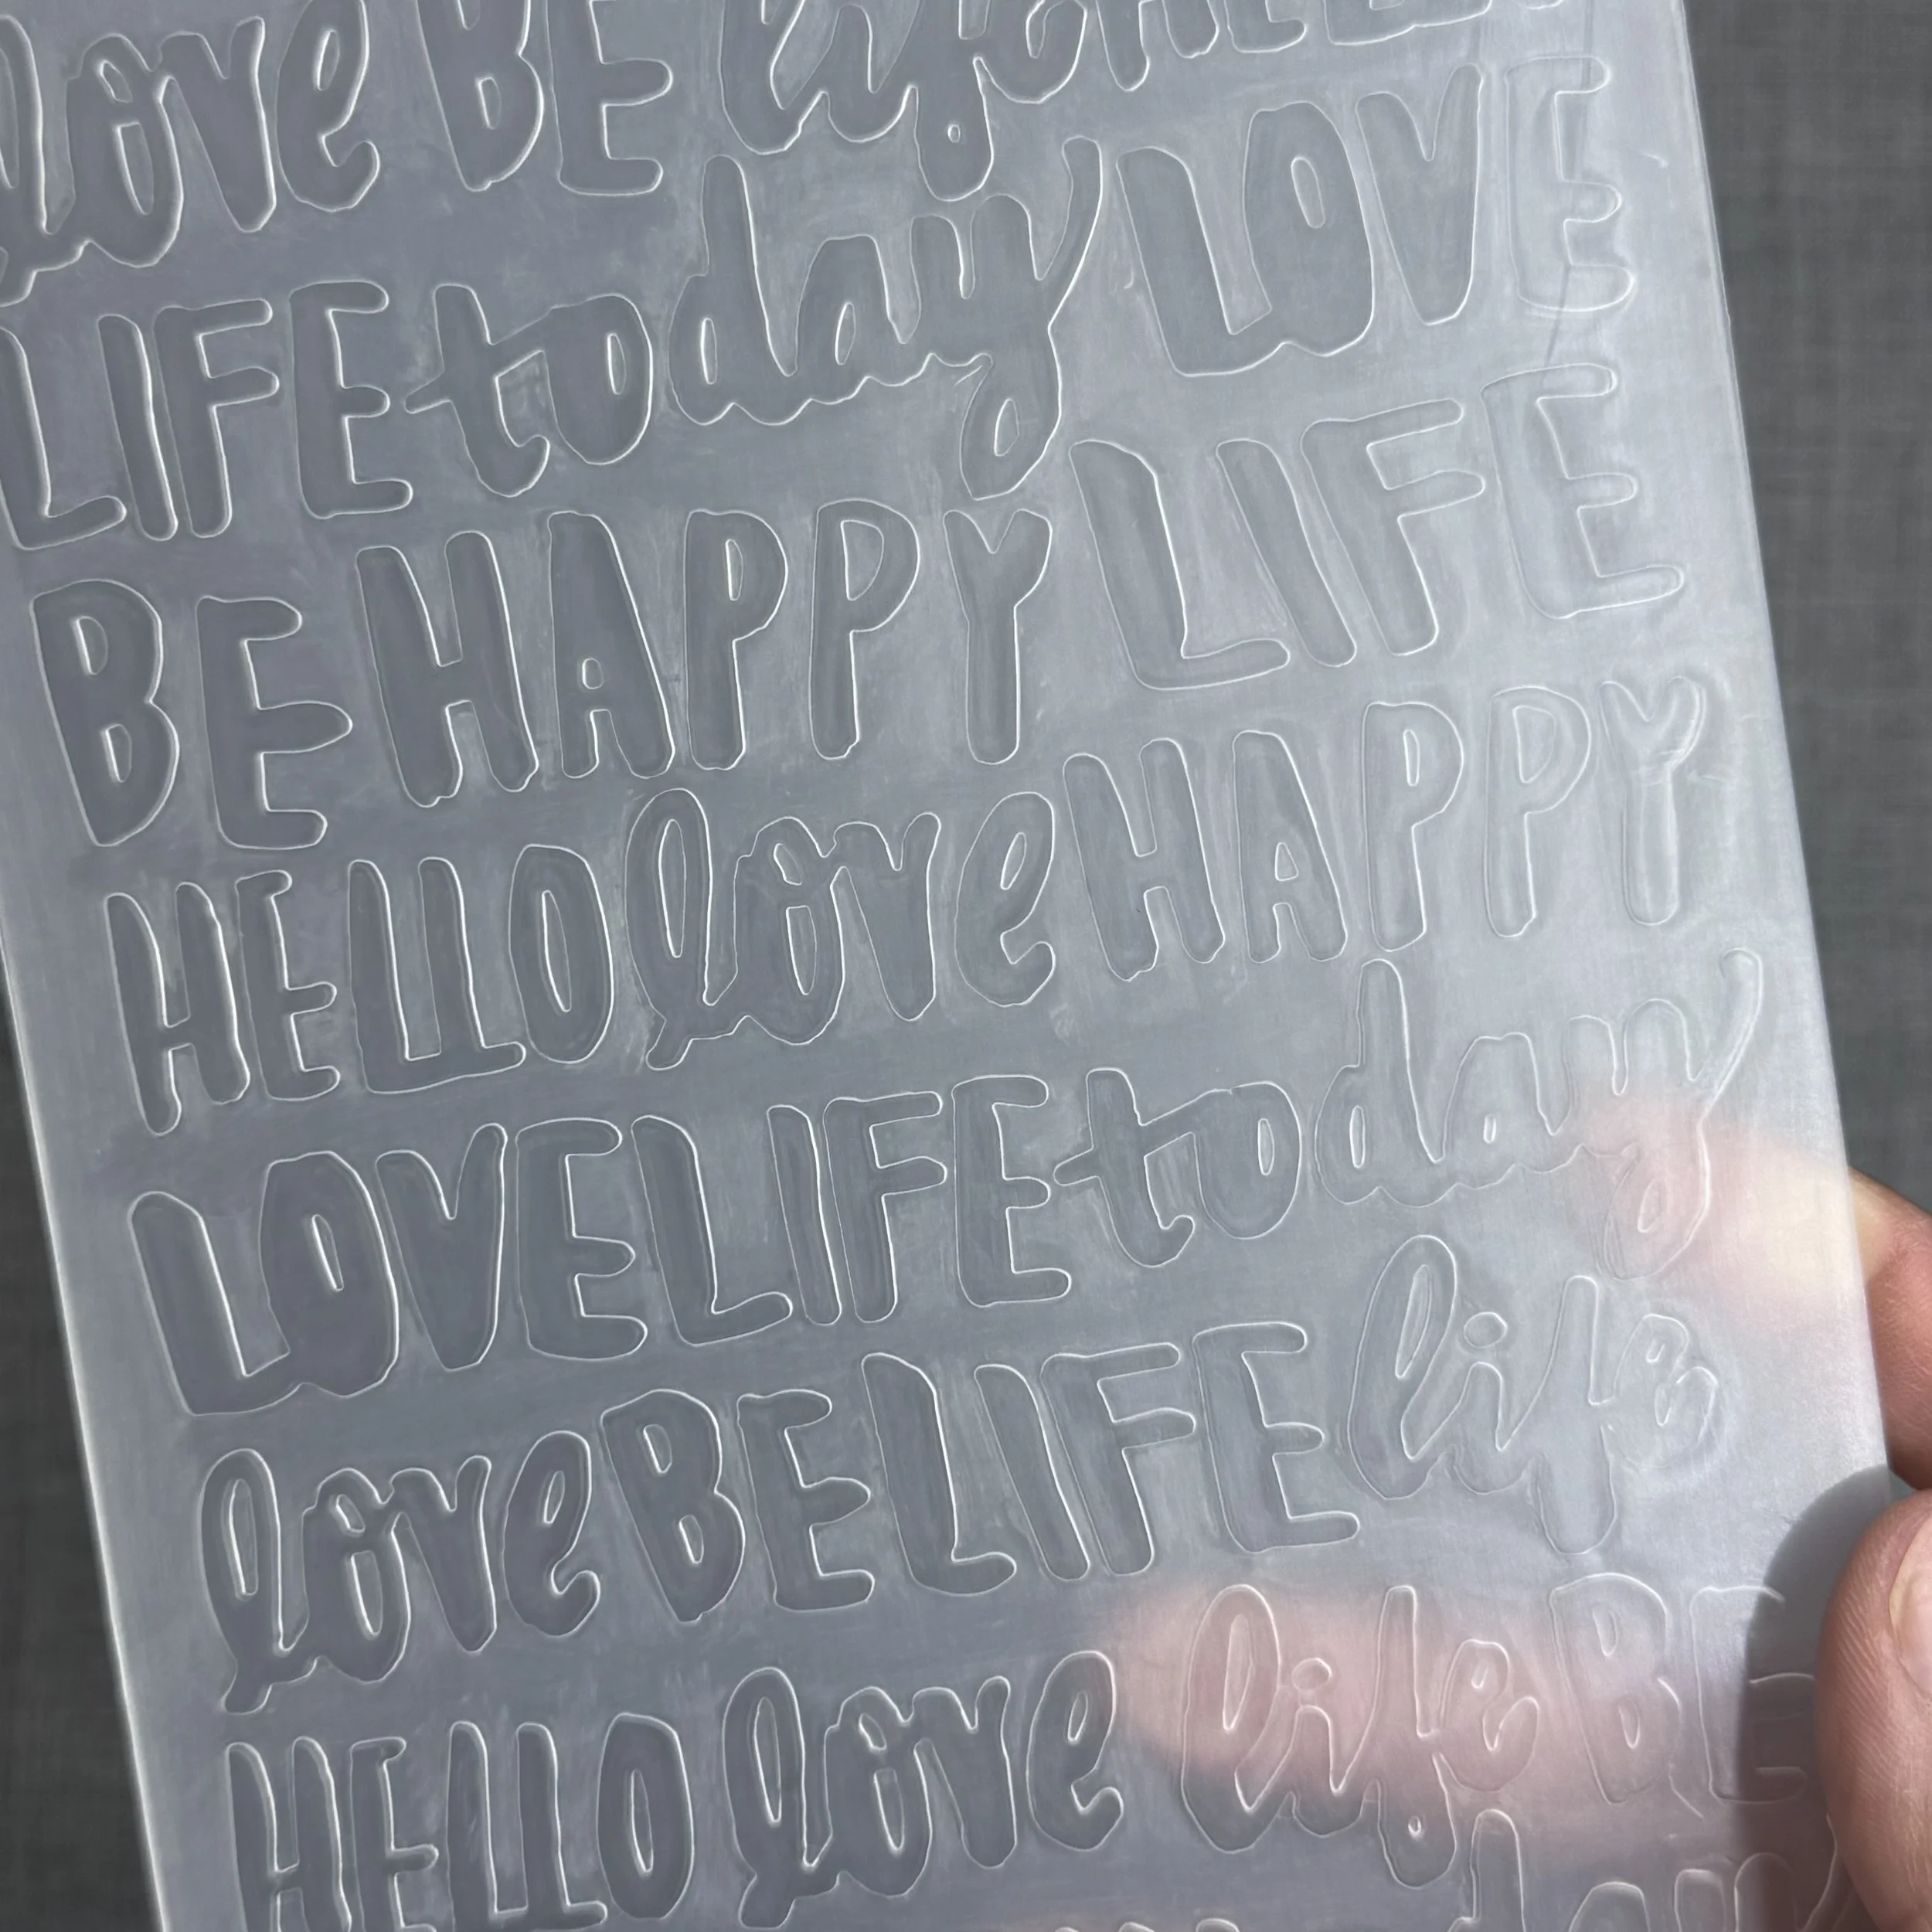 love BE life HELLO
LIFE today LOVE
BE HAPPY LIFE
HELLO love HAPPY
LOVE LIFE today
love BE LIFE life
HELLO love life BE